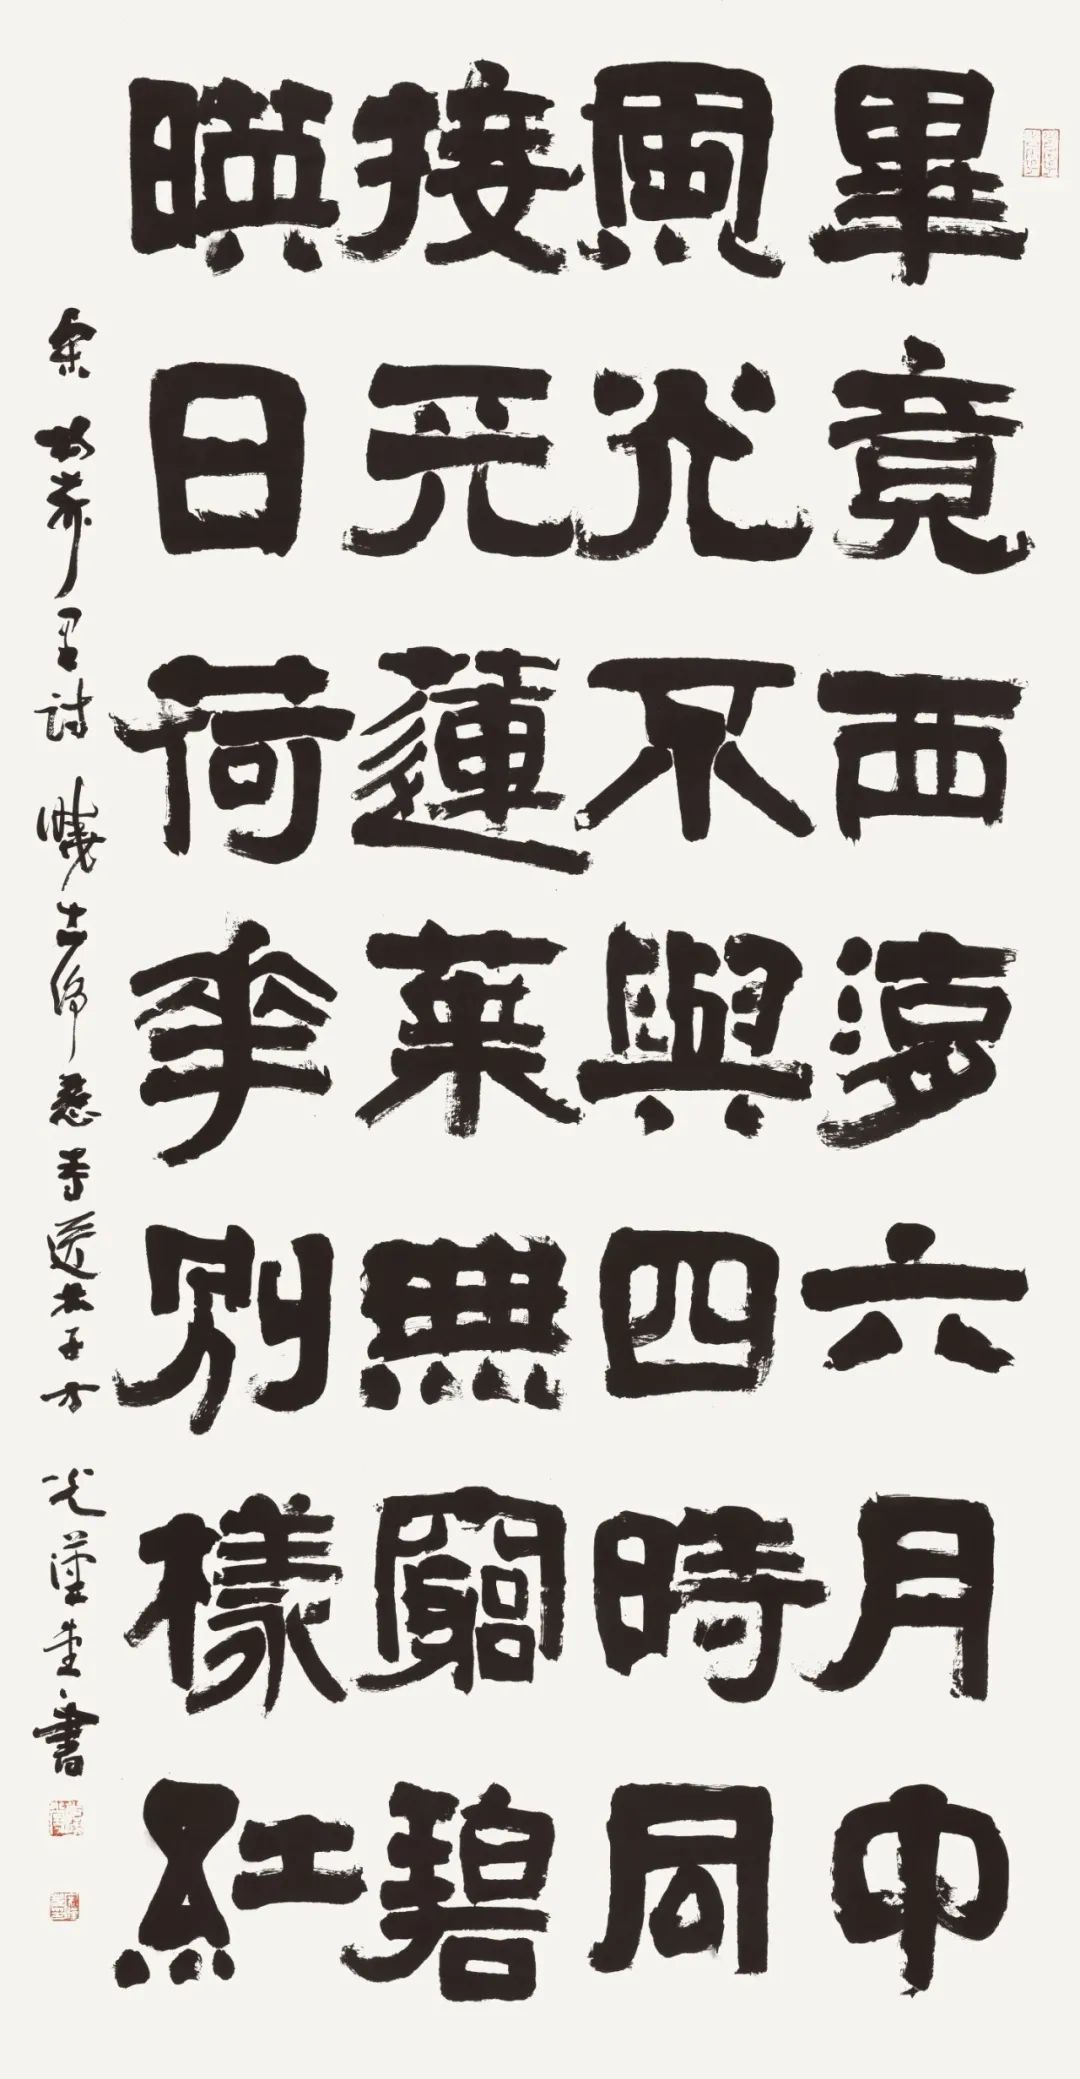 畢竟西湖六月中
風光不與四時同
接天蓮葉無窮碧
暎日荷華別樣紅
宋 楊萬里詩 曉出淨慈寺送林子方 書